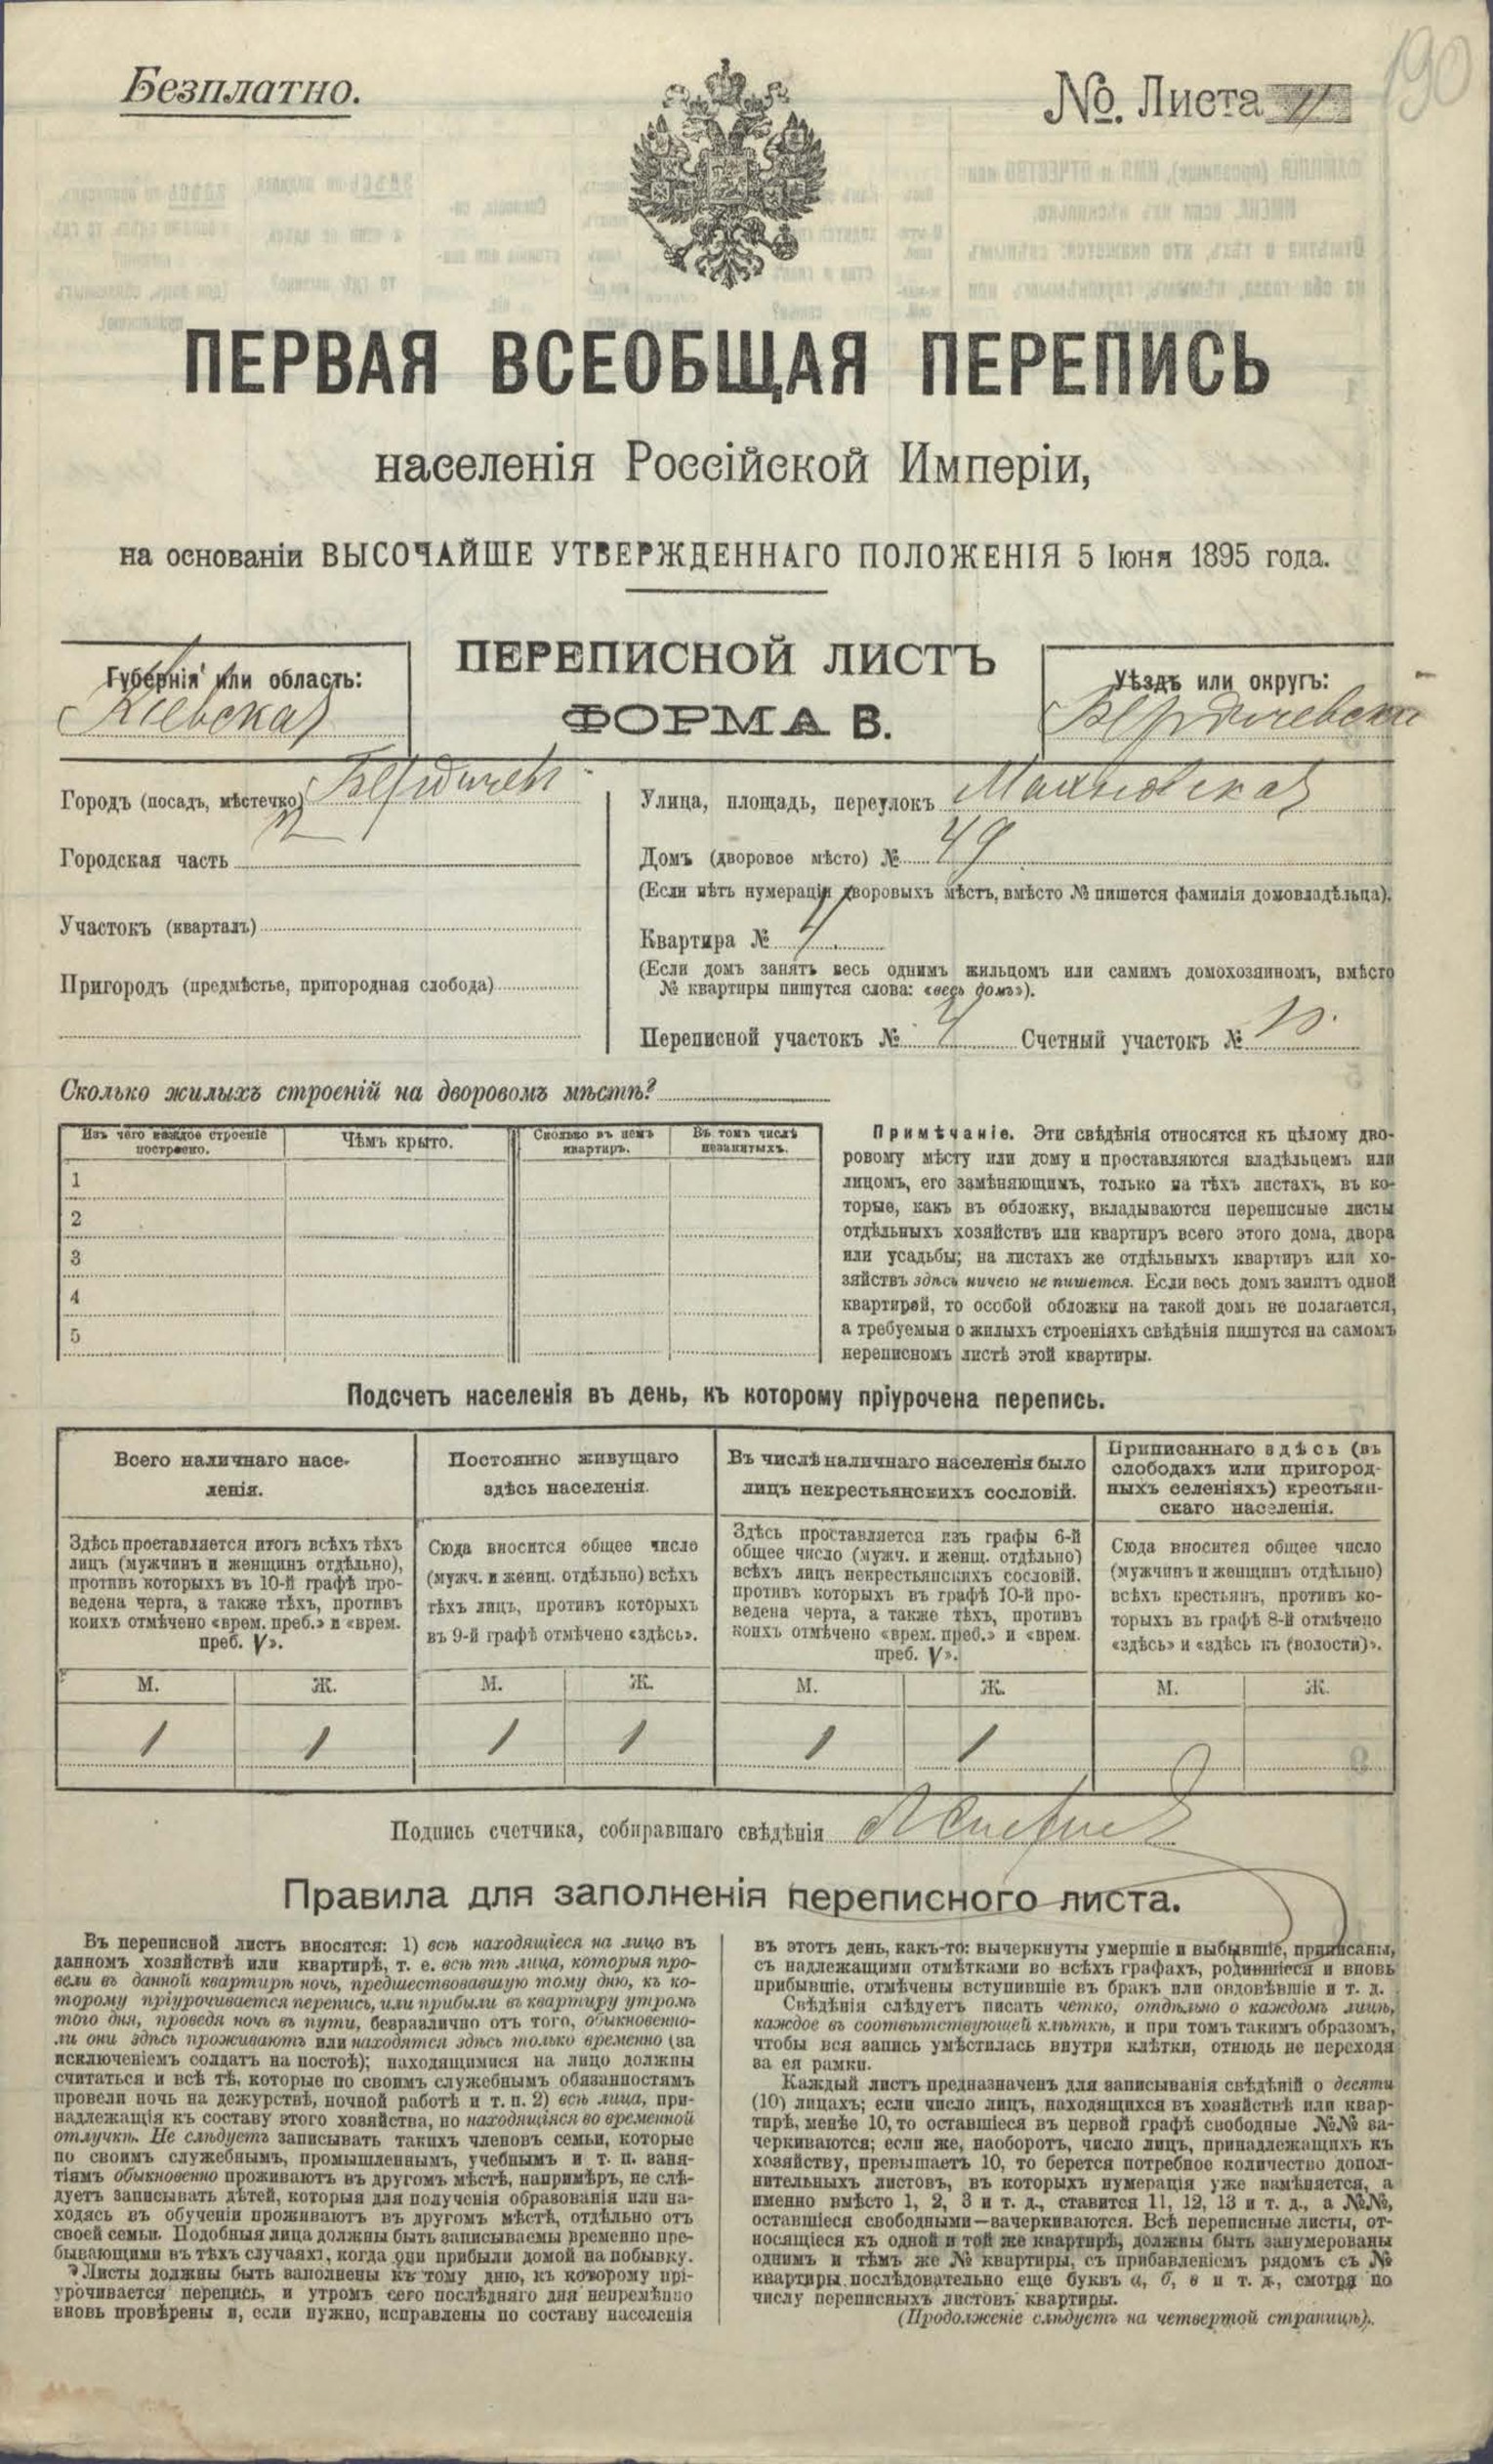 190
Безплатно.
№. Листа
ПЕРВАЯ ВСЕОБЩАЯ ПЕРЕПИСЬ
населенія Россійской Имперіи,
на основаніи ВЫСОЧАЙШЕ УТВЕРЖДЕННАГО ПОЛОЖЕНІЯ 5 Іюня 1895 года.
ПЕРЕПИСНОЙ ЛИСТЪ
ФОРМА В.
Губернія или область:
Кіевская
Уѣздъ или округъ:
Бердичевскій
Городъ (посадъ, мѣстечко) Бердичевъ
Городская часть
Участокъ (кварталъ)
Пригородъ (предмѣстье, пригородная слобода)
Улица, площадь, переулокъ Махновская
Домъ (дворовое мѣсто) № 49
(Если нѣтъ нумераціи дворовыхъ мѣстъ, вмѣсто № пишется фамилія домовладѣльца).
Квартира №
(Если домъ занятъ весь однимъ жильцомъ или самимъ домохозяиномъ, вмѣсто
№ квартиры пишутся слова: «весь домъ»).
Переписной участокъ № Счетный участокъ №
Сколько жилыхъ строеній на дворовомъ мѣстѣ?
Изъ чего каждое строеніе построено.
Чѣмъ крыто.
Сколько въ немъ квартиръ.
Въ томъ числѣ незанятыхъ.
1
2
3
4
5
Примѣчаніе. Эти свѣдѣнія относятся къ цѣлому дво-
ровому мѣсту или дому и проставляются владѣльцемъ или
лицомъ, его замѣняющимъ, только на тѣхъ листахъ, въ ко-
торые, какъ въ обложку, вкладываются переписные листы
отдѣльныхъ хозяйствъ или квартиръ всего этого дома, двора
или усадьбы; на листахъ же отдѣльныхъ квартиръ или хо-
зяйствъ здѣсь ничего не пишется. Если весь домъ занятъ одной
квартирой, то особой обложки на такой домъ не полагается,
а требуемыя о жилыхъ строеніяхъ свѣдѣнія пишутся на самомъ
переписномъ листѣ этой квартиры.
Подсчетъ населенія въ день, къ которому пріурочена перепись.
Всего наличнаго насе-
ленія.
Постоянно живущаго
здѣсь населенія.
Въ числѣ наличнаго населенія было
лицъ некрестьянскихъ сословій.
Приписаннаго здѣсь (въ
слободахъ или пригород-
ныхъ селеніяхъ) крестьян-
скаго населенія.
Здѣсь проставляется итогъ всѣхъ тѣхъ
лицъ (мужчинъ и женщинъ отдѣльно),
противъ которыхъ въ 10-й графѣ про-
ведена черта, а также тѣхъ, противъ
коихъ отмѣчено «врем. преб.» и «врем.
преб. V».
Сюда вносится общее число
(мужч. и женщ. отдѣльно) всѣхъ
тѣхъ лицъ, противъ которыхъ
въ 9-й графѣ отмѣчено «здѣсь».
Здѣсь проставляется изъ графы 6-й
общее число (мужч. и женщ. отдѣльно)
всѣхъ лицъ некрестьянскихъ сословій,
противъ которыхъ въ графѣ 10-й про-
ведена черта, а также тѣхъ, противъ
коихъ отмѣчено «врем. преб.» и «врем.
преб. V».
Сюда вносится общее число
(мужчинъ и женщинъ отдѣльно)
всѣхъ крестьянъ, противъ ко-
торыхъ въ графѣ 8-й отмѣчено
«здѣсь» и «здѣсь къ (волости)».
М. Ж. М. Ж. М. Ж. М. Ж.
1 1 1 1 1 1
Подпись счетчика, собиравшаго свѣдѣнія
Правила для заполненія переписного листа.
Въ переписной листъ вносятся: 1) всѣ находящіеся на лицо въ
данномъ хозяйствѣ или квартирѣ, т. е. всѣ тѣ лица, которыя про-
вели въ данной квартирѣ ночь, предшествовавшую тому дню, къ ко-
торому пріурочивается перепись, или прибыли въ квартиру утромъ
того дня, проведя ночь въ пути, безразлично отъ того, обыкновенно-
ли они здѣсь проживаютъ или находятся здѣсь только временно (за
исключеніемъ солдатъ на постоѣ); находящимися на лицо должны
считаться и всѣ тѣ, которые по своимъ служебнымъ обязанностямъ
провели ночь на дежурствѣ, ночной работѣ и т. п. 2) всѣ лица, при-
надлежащія къ составу этого хозяйства, но находящіяся во временной
отлучкѣ. Не слѣдуетъ записывать такихъ членовъ семьи, которые
по своимъ служебнымъ, промышленнымъ, учебнымъ и т. п. заня-
тіямъ обыкновенно проживаютъ въ другомъ мѣстѣ, напримѣръ, не слѣ-
дуетъ записывать дѣтей, которыя для полученія образованія или на-
ходясь въ обученіи проживаютъ въ другомъ мѣстѣ, отдѣльно отъ
своей семьи. Подобныя лица должны быть записываемы временно пре-
бывающими въ тѣхъ случаяхъ, когда они прибыли домой на побывку.
Листы должны быть заполнены къ тому дню, къ которому прі-
урочивается перепись, и утромъ сего послѣдняго дня непремѣнно
вновь провѣрены и, если нужно, исправлены по составу населенія
въ этотъ день, какъ-то: вычеркнуты умершіе и выбывшіе, приписаны,
съ надлежащими отмѣтками во всѣхъ графахъ, родившіеся и вновь
прибывшіе, отмѣчены вступившіе въ бракъ или овдовѣвшіе и т. д.
Свѣдѣнія слѣдуетъ писать четко, отдѣльно о каждомъ лицѣ,
каждое въ соотвѣтствующей клѣткѣ, и при томъ такимъ образомъ,
чтобы вся запись умѣстилась внутри клѣтки, отнюдь не переходя
за ея рамки.
Каждый листъ предназначенъ для записыванія свѣдѣній о десяти
(10) лицахъ; если число лицъ, находящихся въ хозяйствѣ или квар-
тирѣ, менѣе 10, то оставшіеся въ первой графѣ свободные №№ за-
черкиваются; если же, наоборотъ, число лицъ, принадлежащихъ къ
хозяйству, превышаетъ 10, то берется потребное количество допол-
нительныхъ листовъ, въ которыхъ нумерація уже измѣняется, а
именно вмѣсто 1, 2, 3 и т. д., ставится 11, 12, 13 и т. д., а №№,
оставшіеся свободными—вачеркиваются. Всѣ переписные листы, от-
носящіеся къ одной и той же квартирѣ, должны быть занумерованы
однимъ и тѣмъ же № квартиры, съ прибавленіемъ рядомъ съ №
квартиры послѣдовательно еще буквъ а, б, в и т. д., смотря по
числу переписныхъ листовъ квартиры.
(Продолженіе слѣдуетъ на четвертой страницѣ).